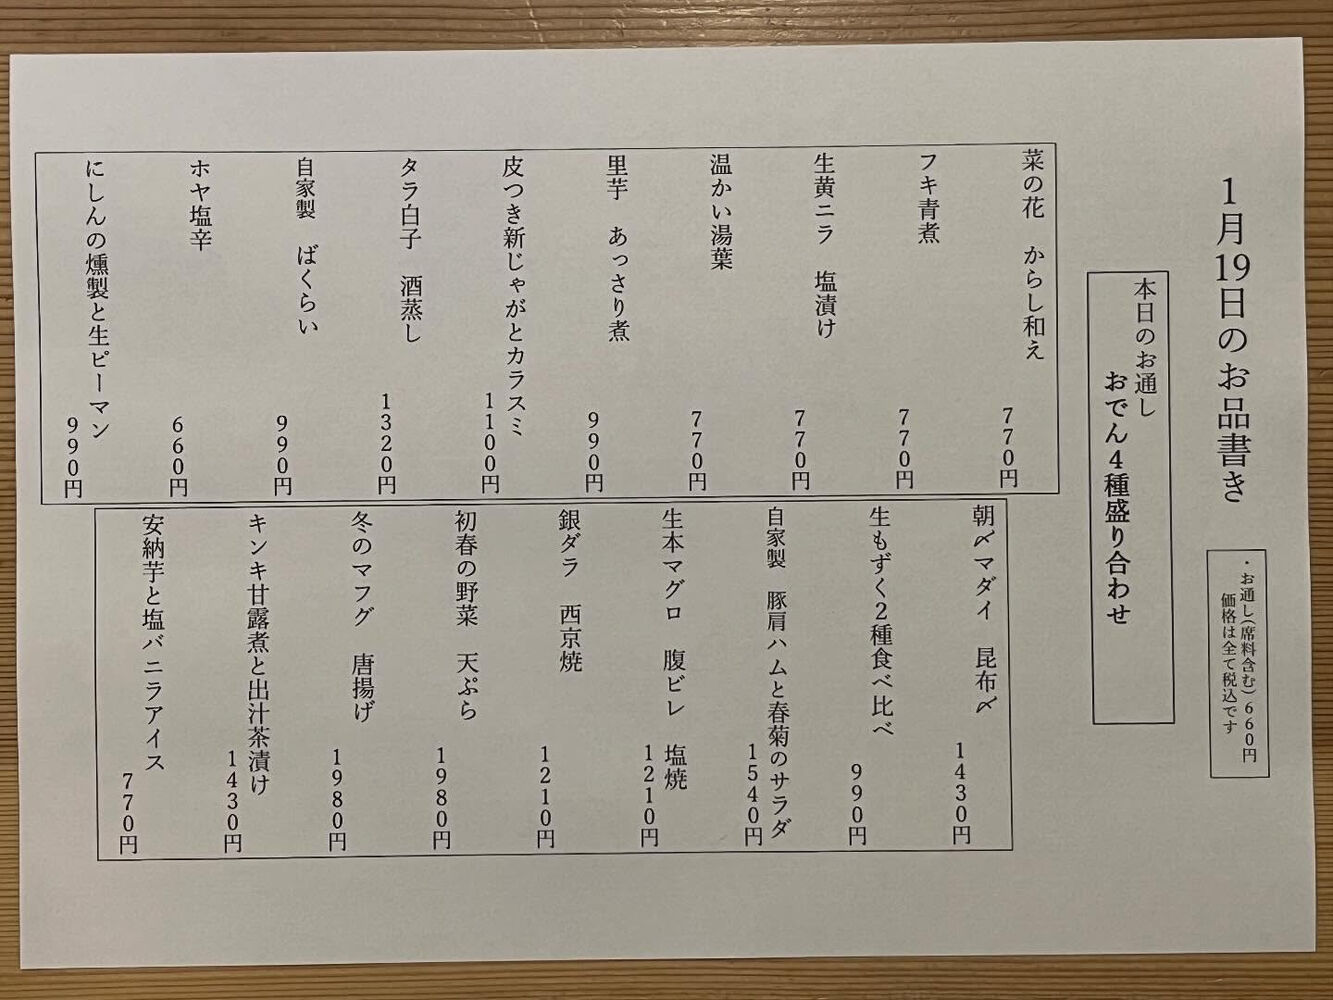 1月19日のお品書き
・お通し(席料含む)660円
価格は全て税込です
本日のお通し
おでん4種盛り合わせ
菜の花 からし和え
770円
フキ青煮
770円
生黄ニラ 塩漬け
770円
温かい湯葉
770円
里芋 あっさり煮
990円
皮つき新じゃがとカラスミ
1100円
タラ白子 酒蒸し
1320円
自家製 ばくらい
990円
ホヤ塩辛
660円
にしんの燻製と生ピーマン
990円
朝〆マダイ 昆布〆
1430円
生もずく2種食べ比べ
990円
自家製 豚肩ハムと春菊のサラダ
1540円
生本マグロ 腹ビレ 塩焼
1210円
銀ダラ 西京焼
1210円
初春の野菜 天ぷら
1980円
冬のマフグ 唐揚げ
1980円
キンキ甘露煮と出汁茶漬け
1430円
安納芋と塩バニラアイス
770円